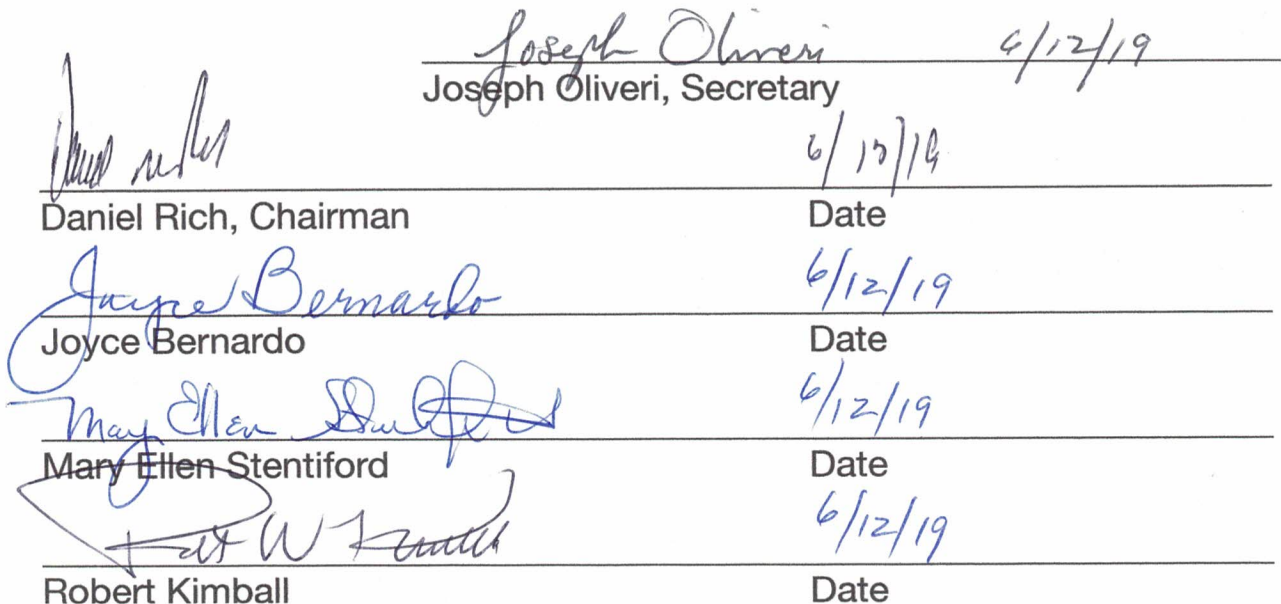 Joseph Oliveri 6/12/19
Joseph Oliveri, Secretary
6/ /19
Daniel Rich, Chairman Date
Joyce Bernardo 6/12/19
Joyce Bernardo Date
Mary Ellen Stentiford 6/12/19
Mary Ellen Stentiford Date
W 6/12/19
Robert Kimball Date